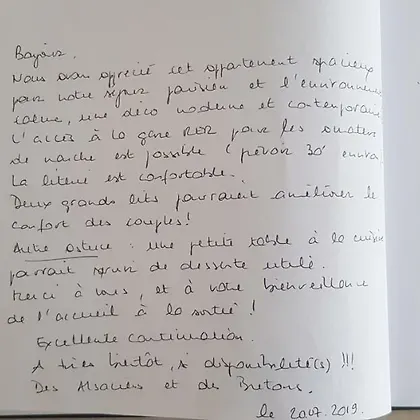 Bonjour,
Nous avons apprécié cet appartement spacieux
pour notre séjour parisien et l'environnement
calme, une déco moderne et contemporaine
L'accès à la gare RER pour les amateurs
de marche est possible (prévoir 30' environ
La literie est confortable.
Deux grands lits pourraient améliorer le
confort des couples!
Autre astuce : une petite table à la cuisine
pourrait servir de desserte utile.
Merci à vous, et à votre bienveillance
de l'accueil à la sortie !
Excellente continuation.
A très bientôt, si disponibilité(s) !!!
Des Alsaciens et des Bretons.
le 2 août. 2019.